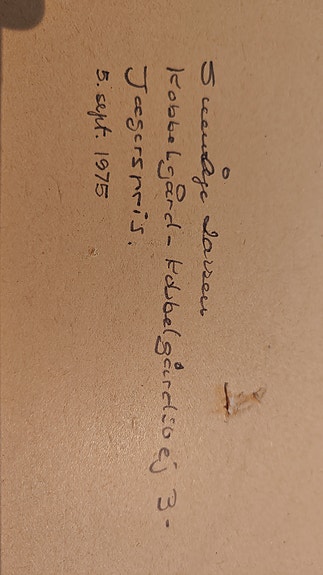 Svend Åge Larsen
Kobbelgård - Kobbelgårdsvej 3 -
Jægerspris.
5. sept. 1975